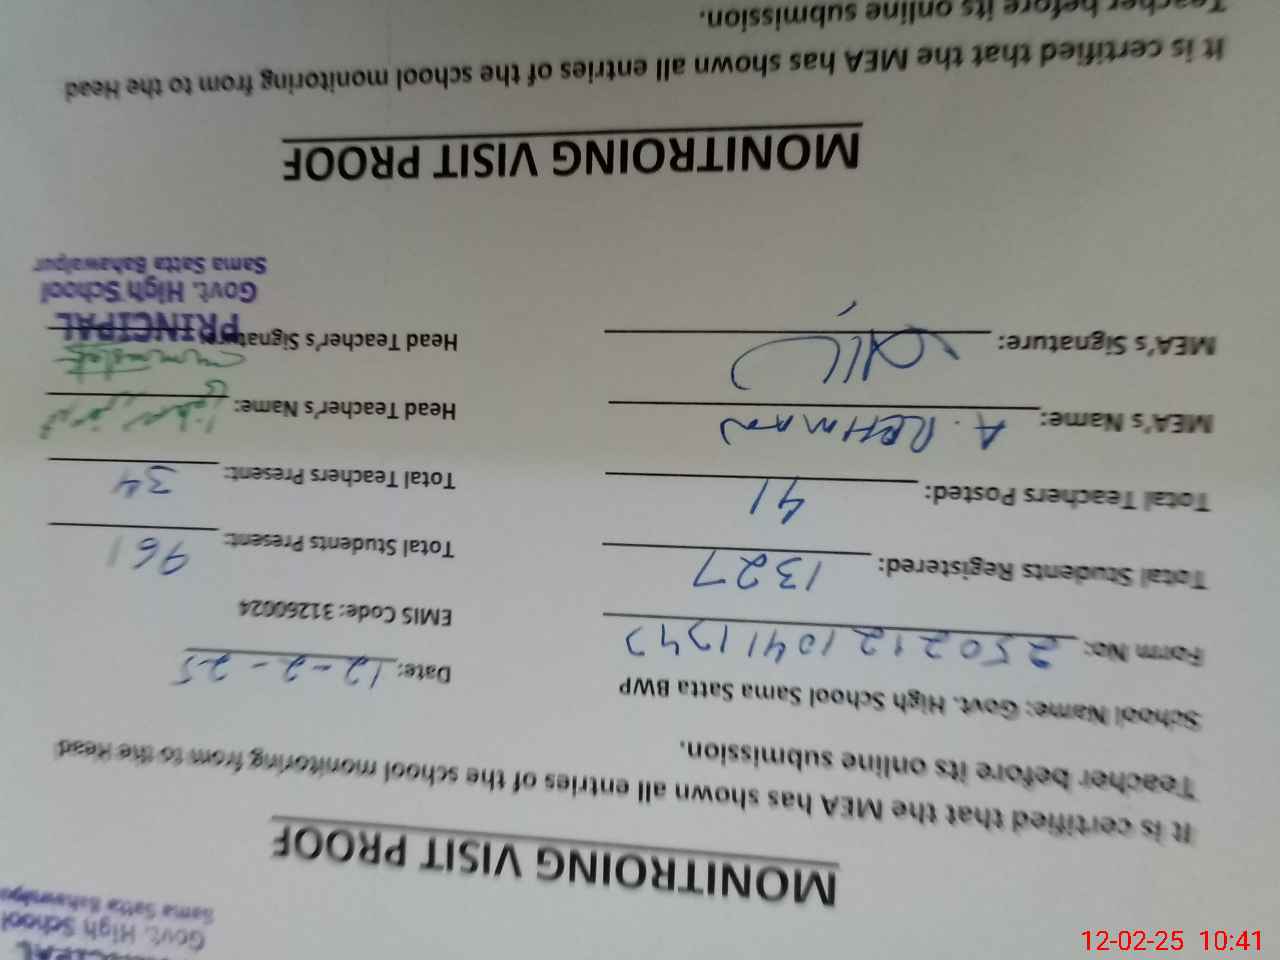 PRINCIPAL
Govt. High School
Sama Satta Bahawalpur
MONITROING VISIT PROOF
It is certified that the MEA has shown all entries of the school monitoring from to the Head
Teacher before its online submission.
School Name: Govt. High School Sama Satta BWP
Date: 12-2-25
Form No: 
EMIS Code: 31260024
Total Students Registered: 1327
Total Students Present: 961
Total Teachers Posted: 41
Total Teachers Present: 34
MEA's Name: A. REHMAN
Head Teacher's Name:
MEA's Signature:
Head Teacher's Signature
PRINCIPAL
Govt. High School
Sama Satta Bahawalpur
MONITROING VISIT PROOF
It is certified that the MEA has shown all entries of the school monitoring from to the Head
Teacher before its online submission.
12-02-25 10:41